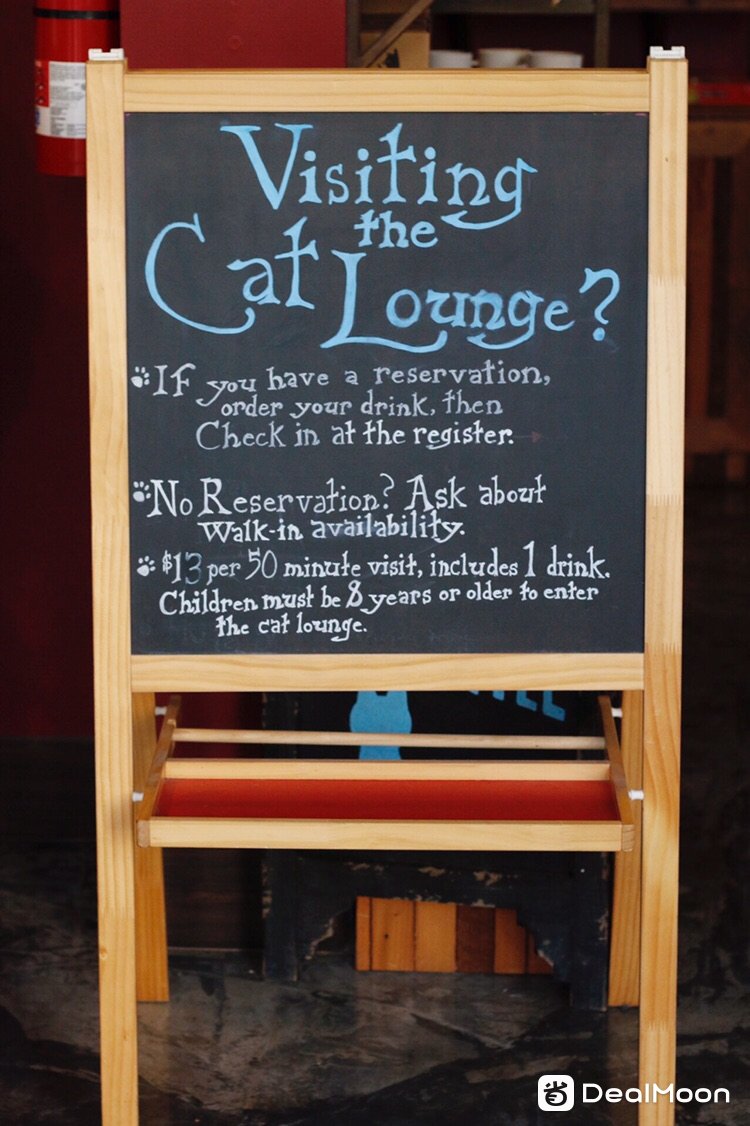 Visiting
the
Cat Lounge?
If you have a reservation,
order your drink, then
Check in at the register.
No Reservation? Ask about
Walk-in availability.
$13 per 50 minute visit, includes 1 drink.
Children must be 8 years or older to enter
the cat lounge.
DealMoon